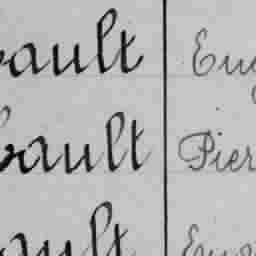 ault Eug
bault Pier
ault Eug